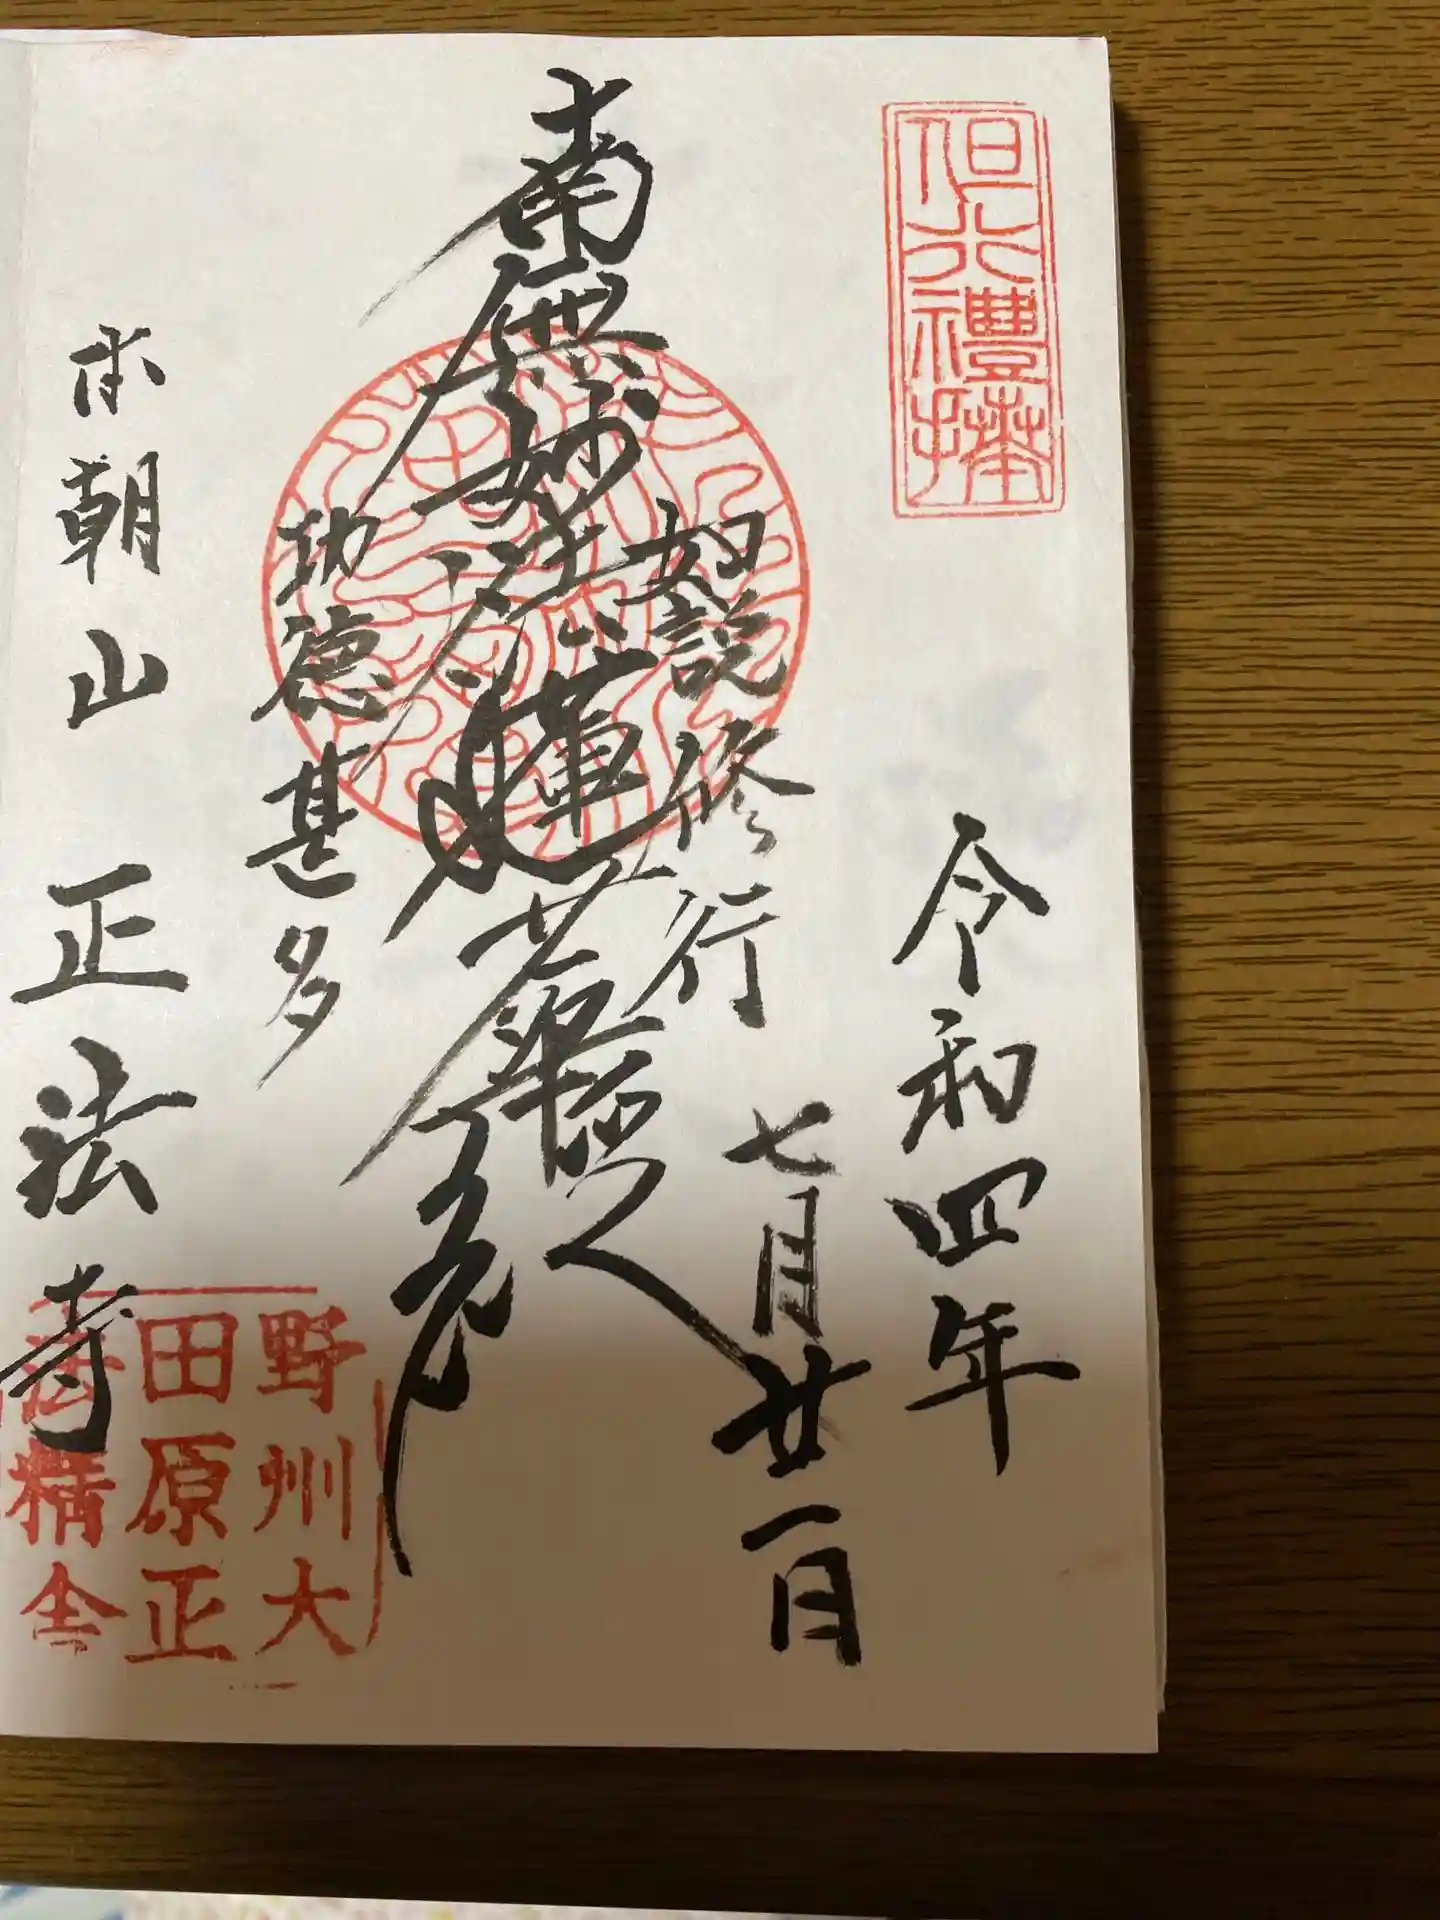 但行禮拝
令和四年
七月廿一日
如説修行
南無妙法蓮華経
功徳甚多
本朝山 正法寺
野州大
田原正
法精舎